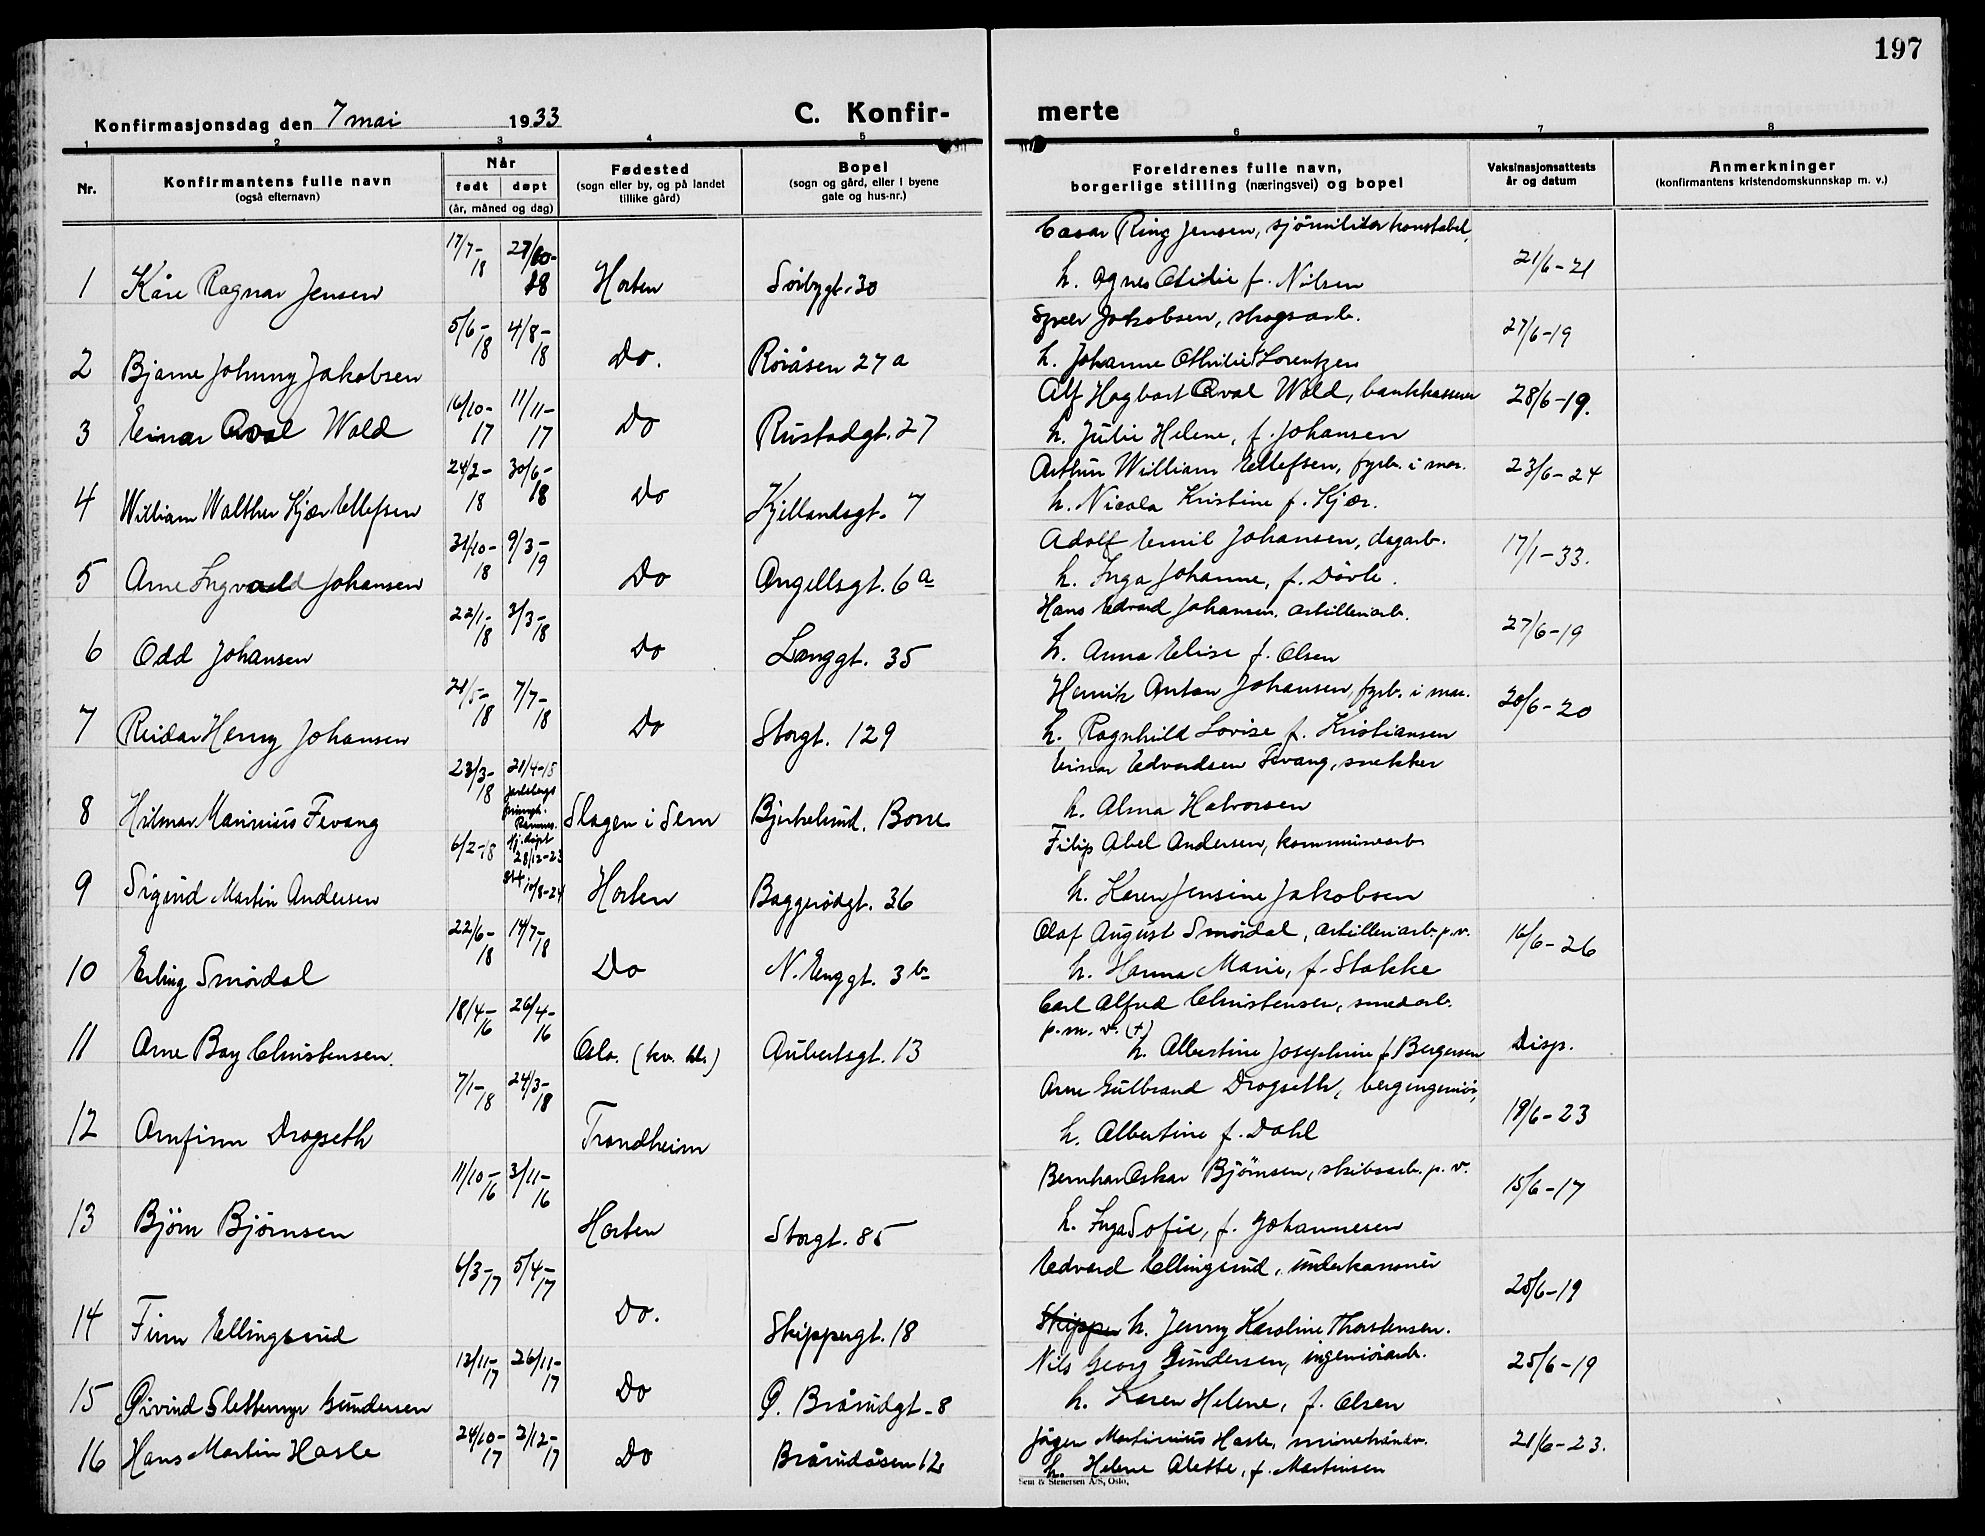 197
Konfirmasjonsdag den 7 mai 1933 C. Konfir- merte
1 2 3 4 5 6 7 8
Nr. Konfirmantens fulle navn (også efternavn) Når født døpt (år, måned og dag) Fødested (sogn eller by, og på landet tillike gård) Bopel (sogn og gård, eller i byene gate og hus-nr.) Foreldrenes fulle navn, borgerlige stilling (næringsvei) og bopel Vaksinasjonsattests år og datum Anmerkninger (konfirmantens kristendomskunnskap m. v.)
1 Kåre Ragnar Jensen 17/7-18 Horten Sørbygt. 30 Ring Jensen, sjømilitær konstabel, h. Agnes f. Nilsen 21/6-21
2 Bjarne Johnny Jakobsen 5/6-18 4/8-18 Do. Røråsen 27a Jakobsen, skogsarb. h. Johanne Othilie Lorentzen 27/6-19
3 Einar Qval Wold 16/10-17 11/11-17 Do Rustadgt. 27 Alf Hagbart Qval Wold, bankkasserer h. Julie Helene, f. Johansen 28/6-19.
4 William Walther Kjær Ellefsen 24/2-18 30/6-18 Do Kjellandsgt. 7 Arthur William Ellefsen, fyrb. i mar. h. Nicola Kristine f. Kjær. 23/6-24
5 Arne Ingvald Johansen 31/10-18 9/3-19 Do Angellsgt. 6a Adolf Emil Johansen, dagarb. h. Inga Johanne, f. Døvle. 17/1-33.
6 Odd Johansen 22/1-18 3/3-18 Do Langgt. 35 Hans Edvard Johansen, artilleriarb. h. Anna Elise f. Olsen 27/6-19
7 Reidar Henry Johansen 21/5-18 7/7-18 Do Storgt. 129 Henrik Anton Johansen, fyrb. i mar. h. Ragnhild Lovise f. Kristiansen 20/6-20
8 Hilmar Marinius Fevang 23/3-18 21/4-15 Slagen i Sem Bjerkelund. Borre Einar Edvardsen Fevang, snekker h. Alma Halvorsen
9 Sigurd Martin Andersen 6/2-18 Hj.døpt 28/12-23 10/8-24 Horten Baggerødgt. 36 Filip Abel Andersen, kommunearb. h. Karen Jensine Jakobsen
10 Erling Smørdal 22/6-18 14/7-18 Do N. Enggt. 3b Olaf August Smørdal, artilleriarb. p.v. h. Hanna Marie, f. Stokke 16/6-26
11 Arne Bay Christensen. 18/4-16 26/4-16 Oslo. (kv. kl.) Aubertsgt. 13 Carl Alfred Christensen, smedarb. p.m. v. (+) h. Albertine Josephine f. Bergersen Disp.
12 Arnfinn Drogseth 7/1-18 24/3-18 Trondheim Arne Gulbrand Drogseth, bergingeniør, h. Albertine f. Dahl 19/6-23
13 Bjørn Bjørnsen 11/10-16 3/11-16 Horten Storgt. 85 Bernhar Oskar Bjørnsen, skibsarb. p. v. h. Inga Sofie, f. Johannesen 15/6-17
14 Finn Ellingsrud 6/3-17 5/4-17 Do. Skippergt. 18 Edvard Ellingsrud, underkanoner Skipper h. Jenny Karoline Thorstensen. 25/6-19
15 Øivind Slettemyr Gundersen 12/11-17 26/11-17 Do Ø. Brårudgt. 8 Nils Georg Gundersen, ingeniørarb. h. Karen Helene, f. Olsen 25/6-19
16 Hans Martin Hasle 24/10-17 2/12-17 Do Brårudåsen 12 Jørgen Martinius Hasle, h. Helene Alette, f. Martinsen 21/6-23.
Sem & Stenersen A/S, Oslo.